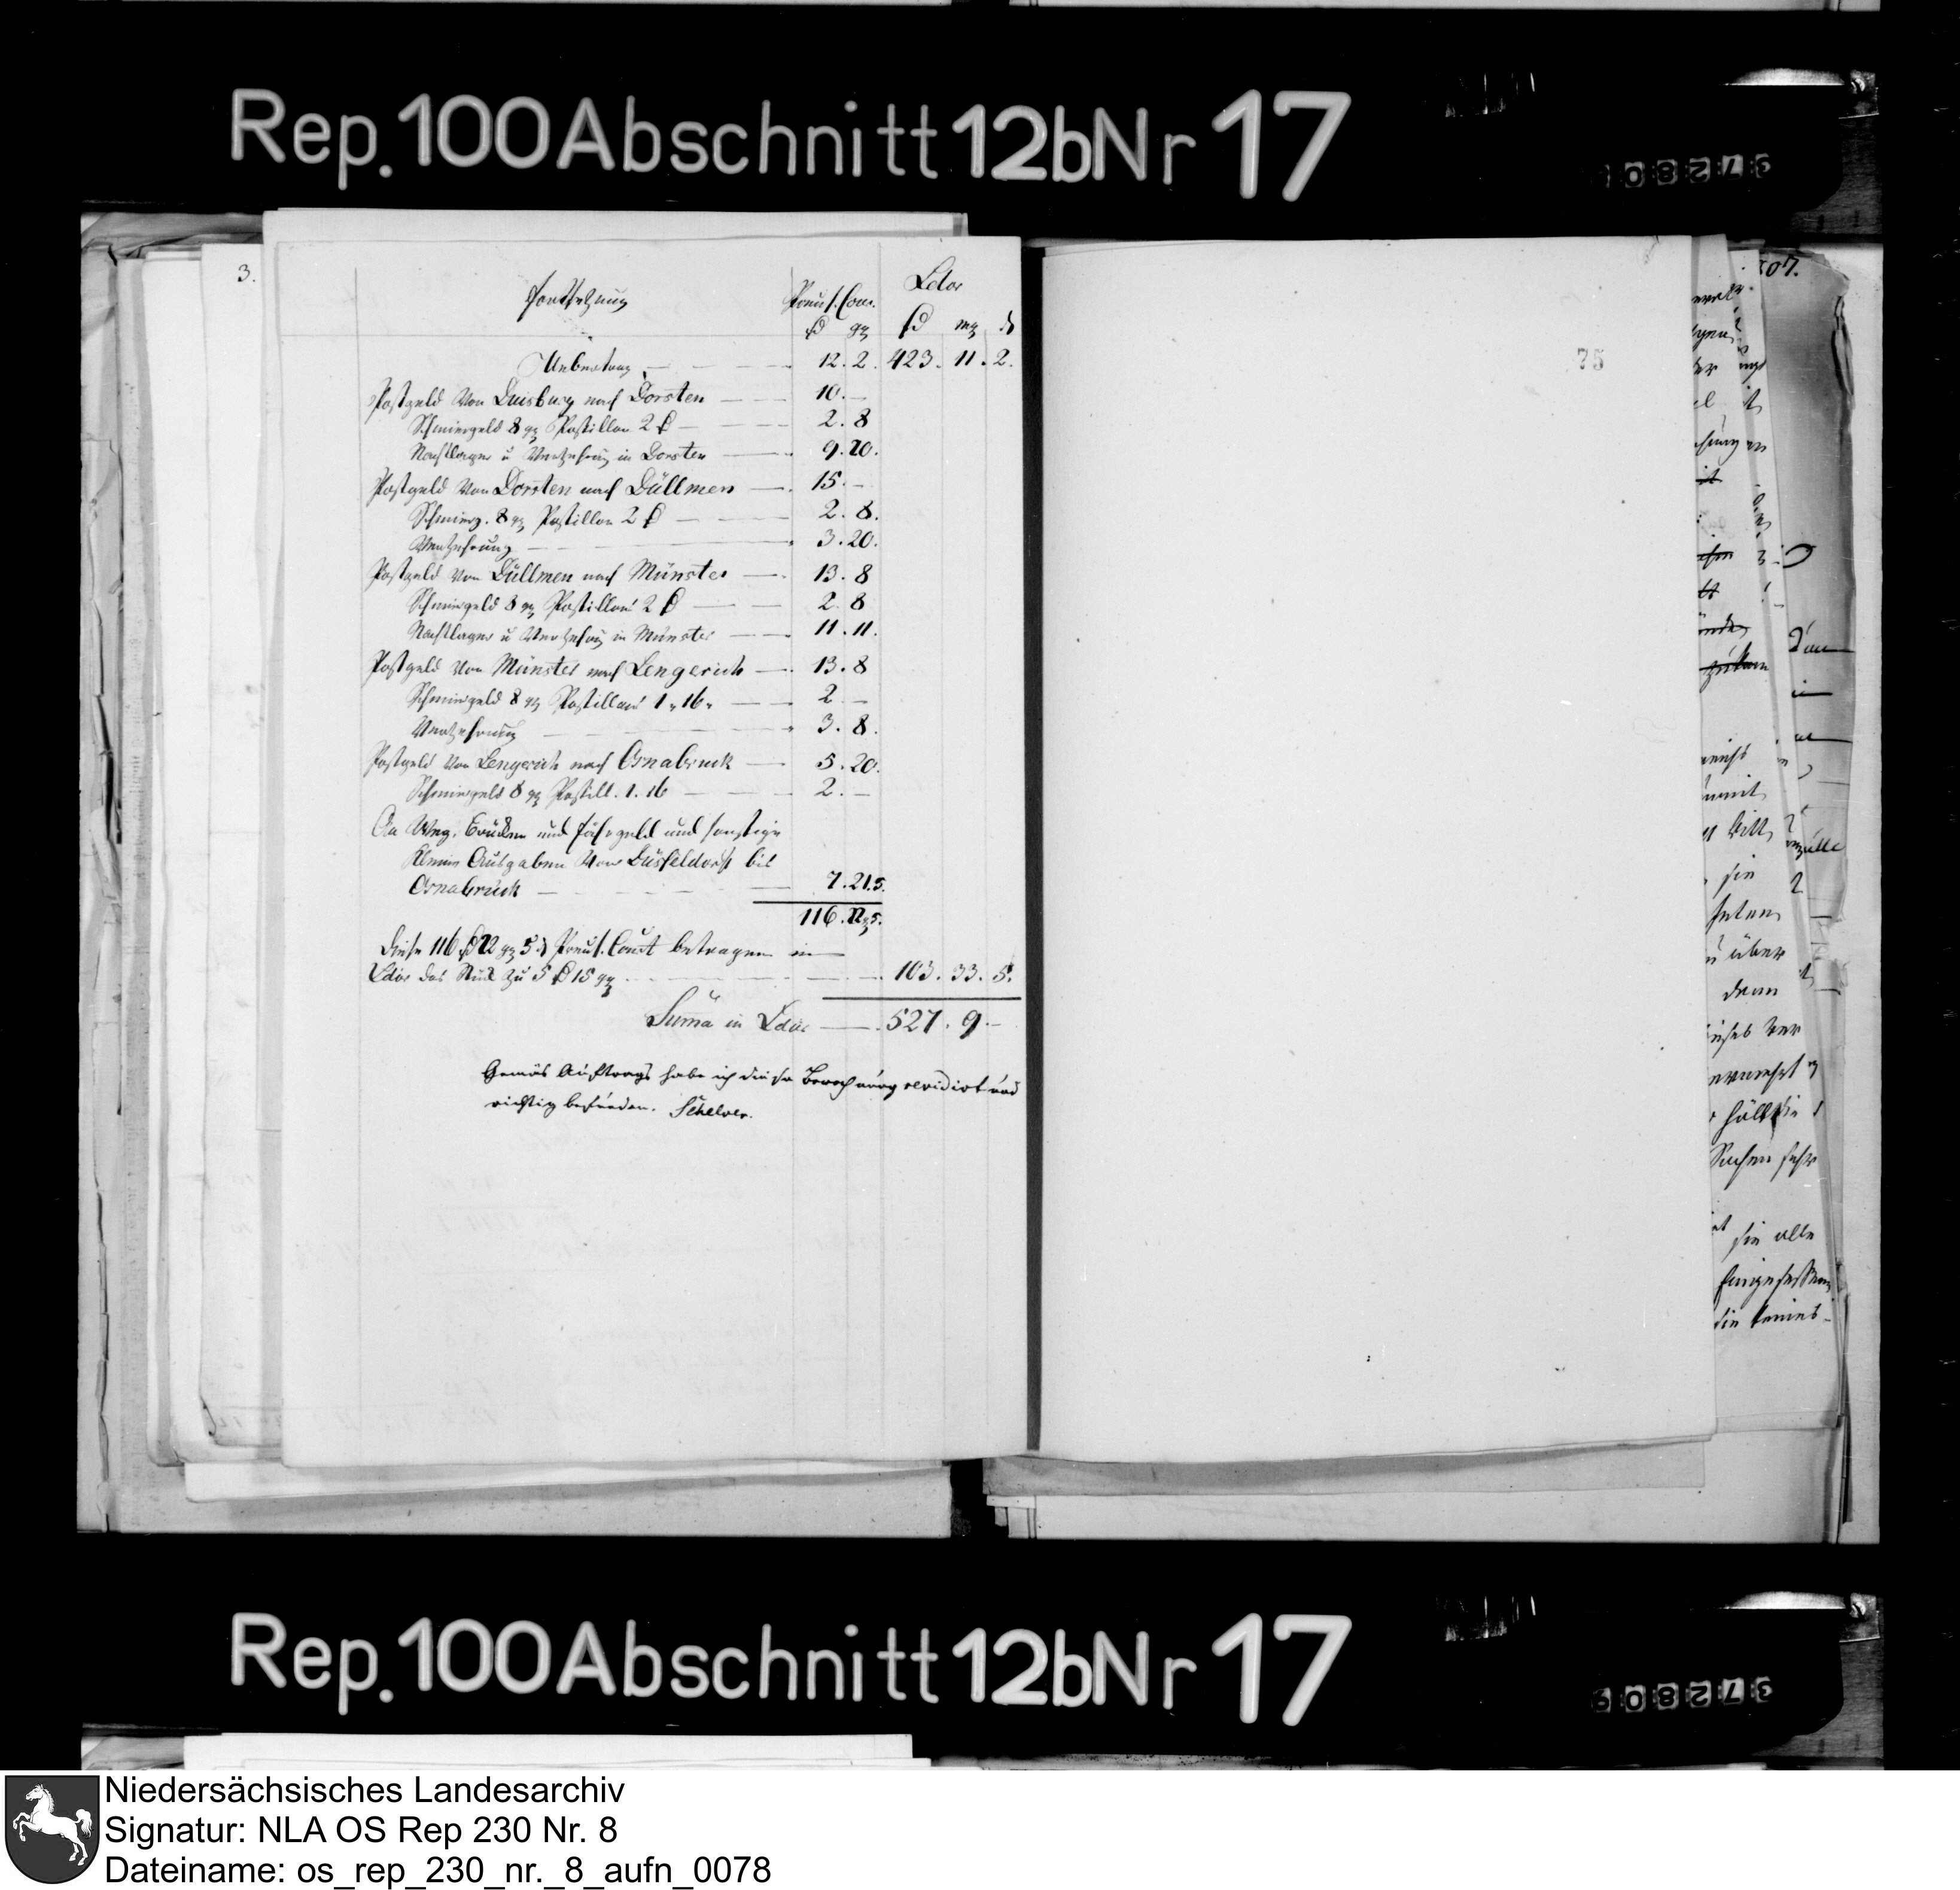 Rep. 100 Abschnitt 12b Nr 17
372809
3.
Fortsetzung
Preuß. Cour.
Ldor
gg mg d
Uebertrag 12. 2. 423. 11. 2.
Postgeld von Duisburg nach Dorsten 10. –
Schmiergeld 8 gg Postillon 2 rd 2. 8
Nachtlager u Verzehrung in Dorsten 9. 20.
Postgeld von Dorsten nach Düllmen 15. –
Schmierg. 8 gg Postillon 2 rd 2. 8.
Verzehrung 3. 20.
Postgeld von Düllmen nach Münster 13. 8
Schmiergeld 8 gg Postillon 2 rd 2. 8
Nachtlager u Verzehrung in Münster 11. 11.
Postgeld von Münster nach Lengerich 13. 8
Schmiergeld 8 gg Postillon 1 „ 16 „ 2. –
Verzehrung 3. 8.
Postgeld von Lengerich nach Osnabruck 5. 20.
Schmiergeld 8 gg Postill. 1. 16 2. –
An Weg, Brücken und Fährgeld und sonstige
kleine Ausgaben von Düsseldorf bis
Osnabrück 7. 21. 5.
116. 22. 5.
Diese 116 rd 22 gg 5 d Preuß. Court betragen in
Ldor das Stück zu 5 rd 15 gg 103. 33. 5.
Suma in Ldor 527. 9. –
Gemäs Auftrags habe ich diese Berechnung revidirt und
richtig befunden. Schelver.
75
107.
über
denn
sie alle
Rep. 100 Abschnitt 12b Nr 17
372809
Niedersächsisches Landesarchiv
Signatur: NLA OS Rep 230 Nr. 8
Dateiname: os_rep_230_nr._8_aufn_0078